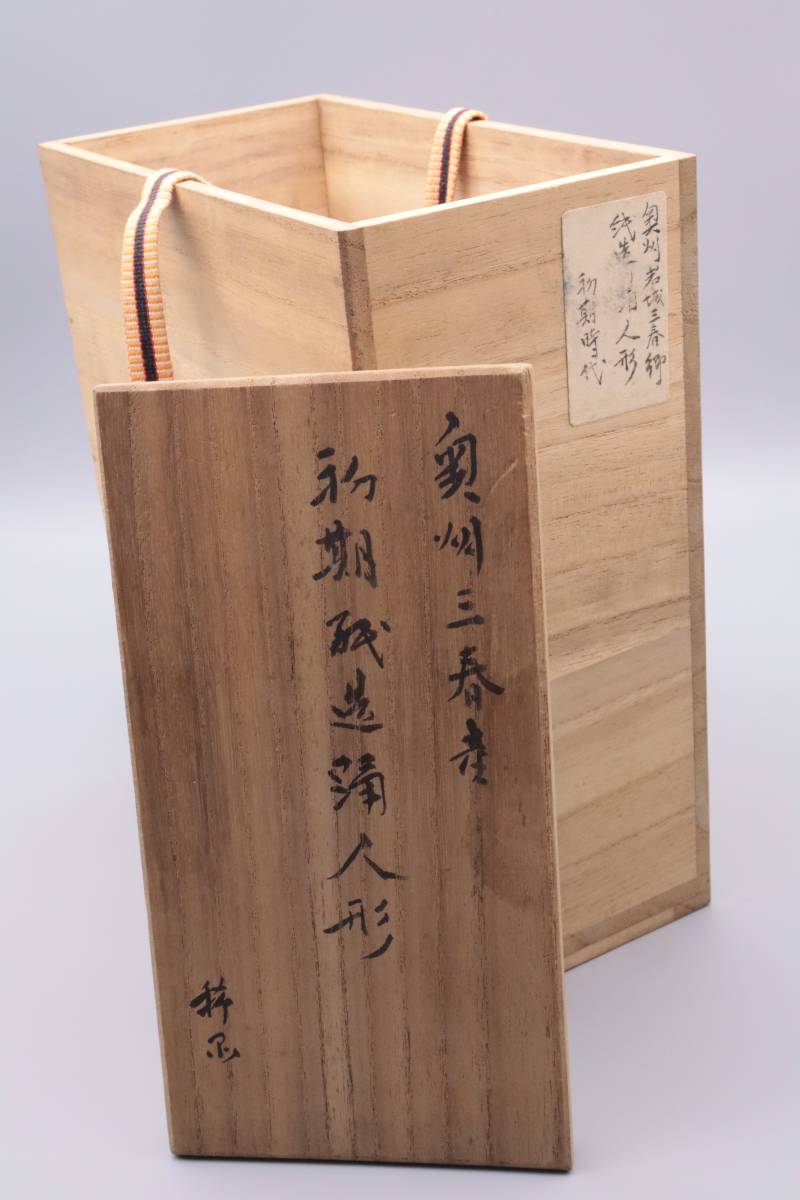 奥州三春産
初期紙造踊人形
奥州岩城三春郷
紙造り踊人形
初期時代